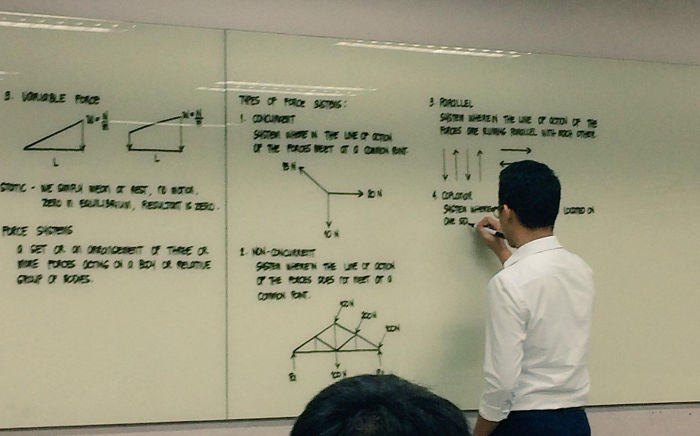 3. VARIABLE FORCE
W = N/m
W = N/m
L
L
STATIC - WE SIMPLY MEAN AT REST, NO MOTION,
ZERO IN EQUILIBRIUM, RESULTANT IS ZERO.
FORCE SYSTEMS
A SET OR AN ARRANGEMENT OF THREE OR
MORE FORCES ACTING ON A BODY OR RELATIVE
GROUP OF BODIES.
TYPES OF FORCE SYSTEMS:
1. CONCURRENT
SYSTEM WHERE IN THE LINE OF ACTION
OF THE FORCES MEET AT A COMMON POINT.
15 N
20 N
10 N
2. NON-CONCURRENT
SYSTEM WHEREIN THE LINE OF ACTION
OF THE FORCES DOES NOT MEET AT A
COMMON POINT.
100N
200N
100N
100 N
3. PARALLEL
SYSTEM WHEREIN THE LINE OF ACTION OF THE
FORCES ARE RUNNING PARALLEL WITH EACH OTHER.
4. COPLANAR
SYSTEM WHERE
LOCATED ON
ONE